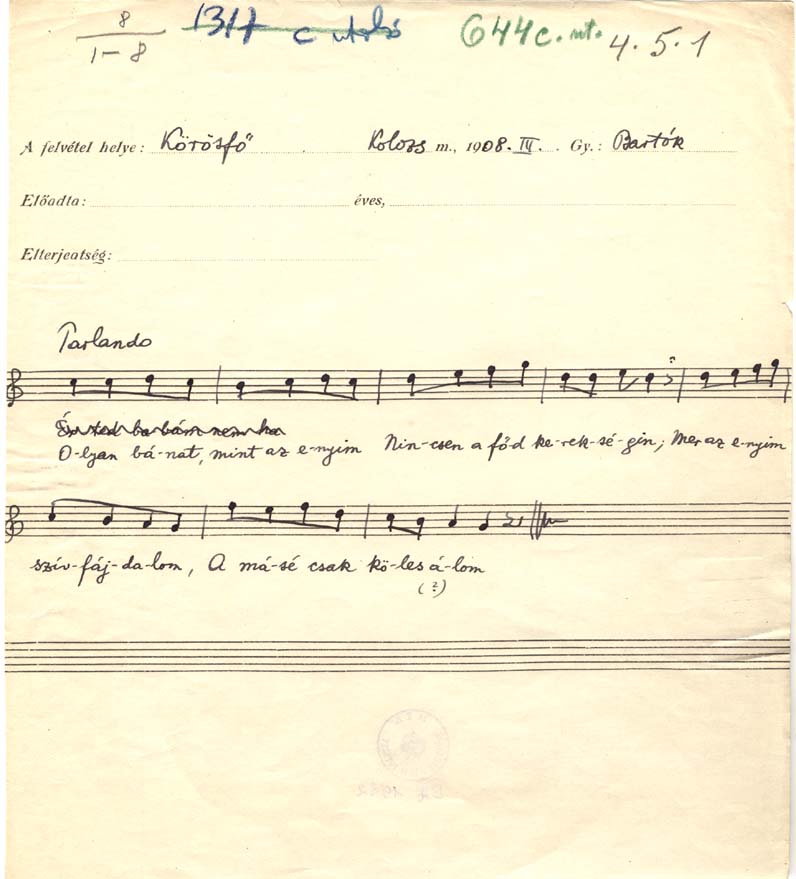 8
1-8
1311 c utolsó
644c. nt.
4. 5. 1
A felvétel helye: Körösfő Kolozs m., 1908. IV. Gy.: Bartók
Előadta: éves,
Elterjeatség:
Parlando
Én ted ba-bám nem ha
O-lyan bá-nat, mint az e-nyim Nin-csen a főd ke-rek-sé-gin; Mer az e-nyim
szív-fáj-da-lom, A má-sé csak kö-les á-lom
(?)